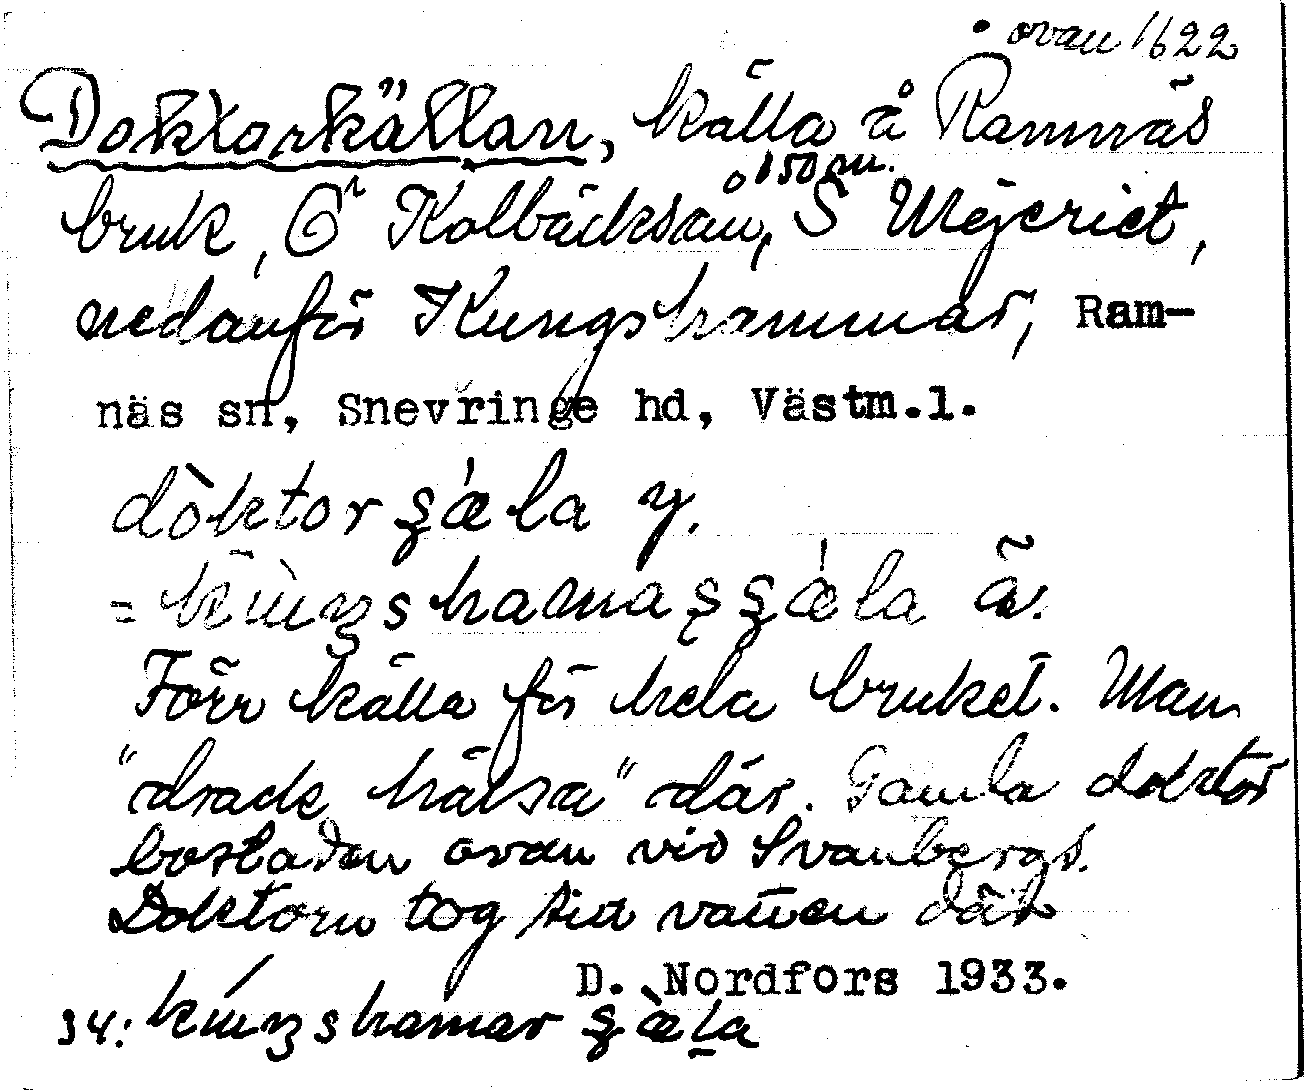 • ovan 1622
Doktorkällan, källa å Ramnäs
150 m.
bruk, Ö Kolbäcksån, S Mejeriet,
nedanför Kungshammar, Ram-
näs sn, Snevringe hd, Västm.l.
dòktorʂǽla y.
= kùŋshamaʂʂǽla ä.
Förr källa för hela bruket. Man
"drack hälsa" där. Gamla doktor
bostaden ovan vid Svanbergs.
Doktorn tog sitt vatten där
D. Nordfors 1933.
34: kúŋshamar ʂæ̀la